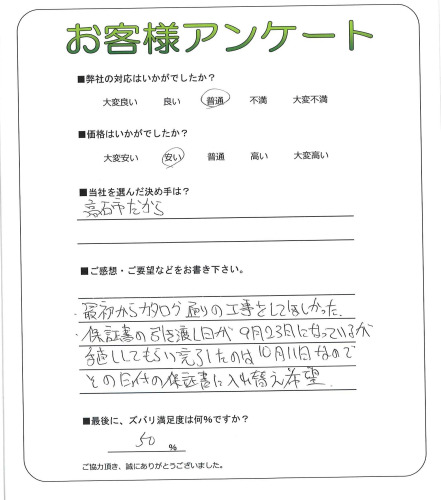 お客様アンケート
■弊社の対応はいかがでしたか?
大変良い 良い 普通 不満 大変不満
■価格はいかがでしたか?
大変安い 安い 普通 高い 大変高い
■当社を選んだ決め手は?
高石市だから
■ご感想・ご要望などをお書き下さい。
・最初からカタログ通りの工事をしてほしかった.
・保証書の引き渡し日が9月23日になっているが
直してもらい完了したのは10月11日なので
その日付の保証書に入れ替え希望.
■最後に、ズバリ満足度は何%ですか?
50 %
ご協力頂き、誠にありがとうございました。